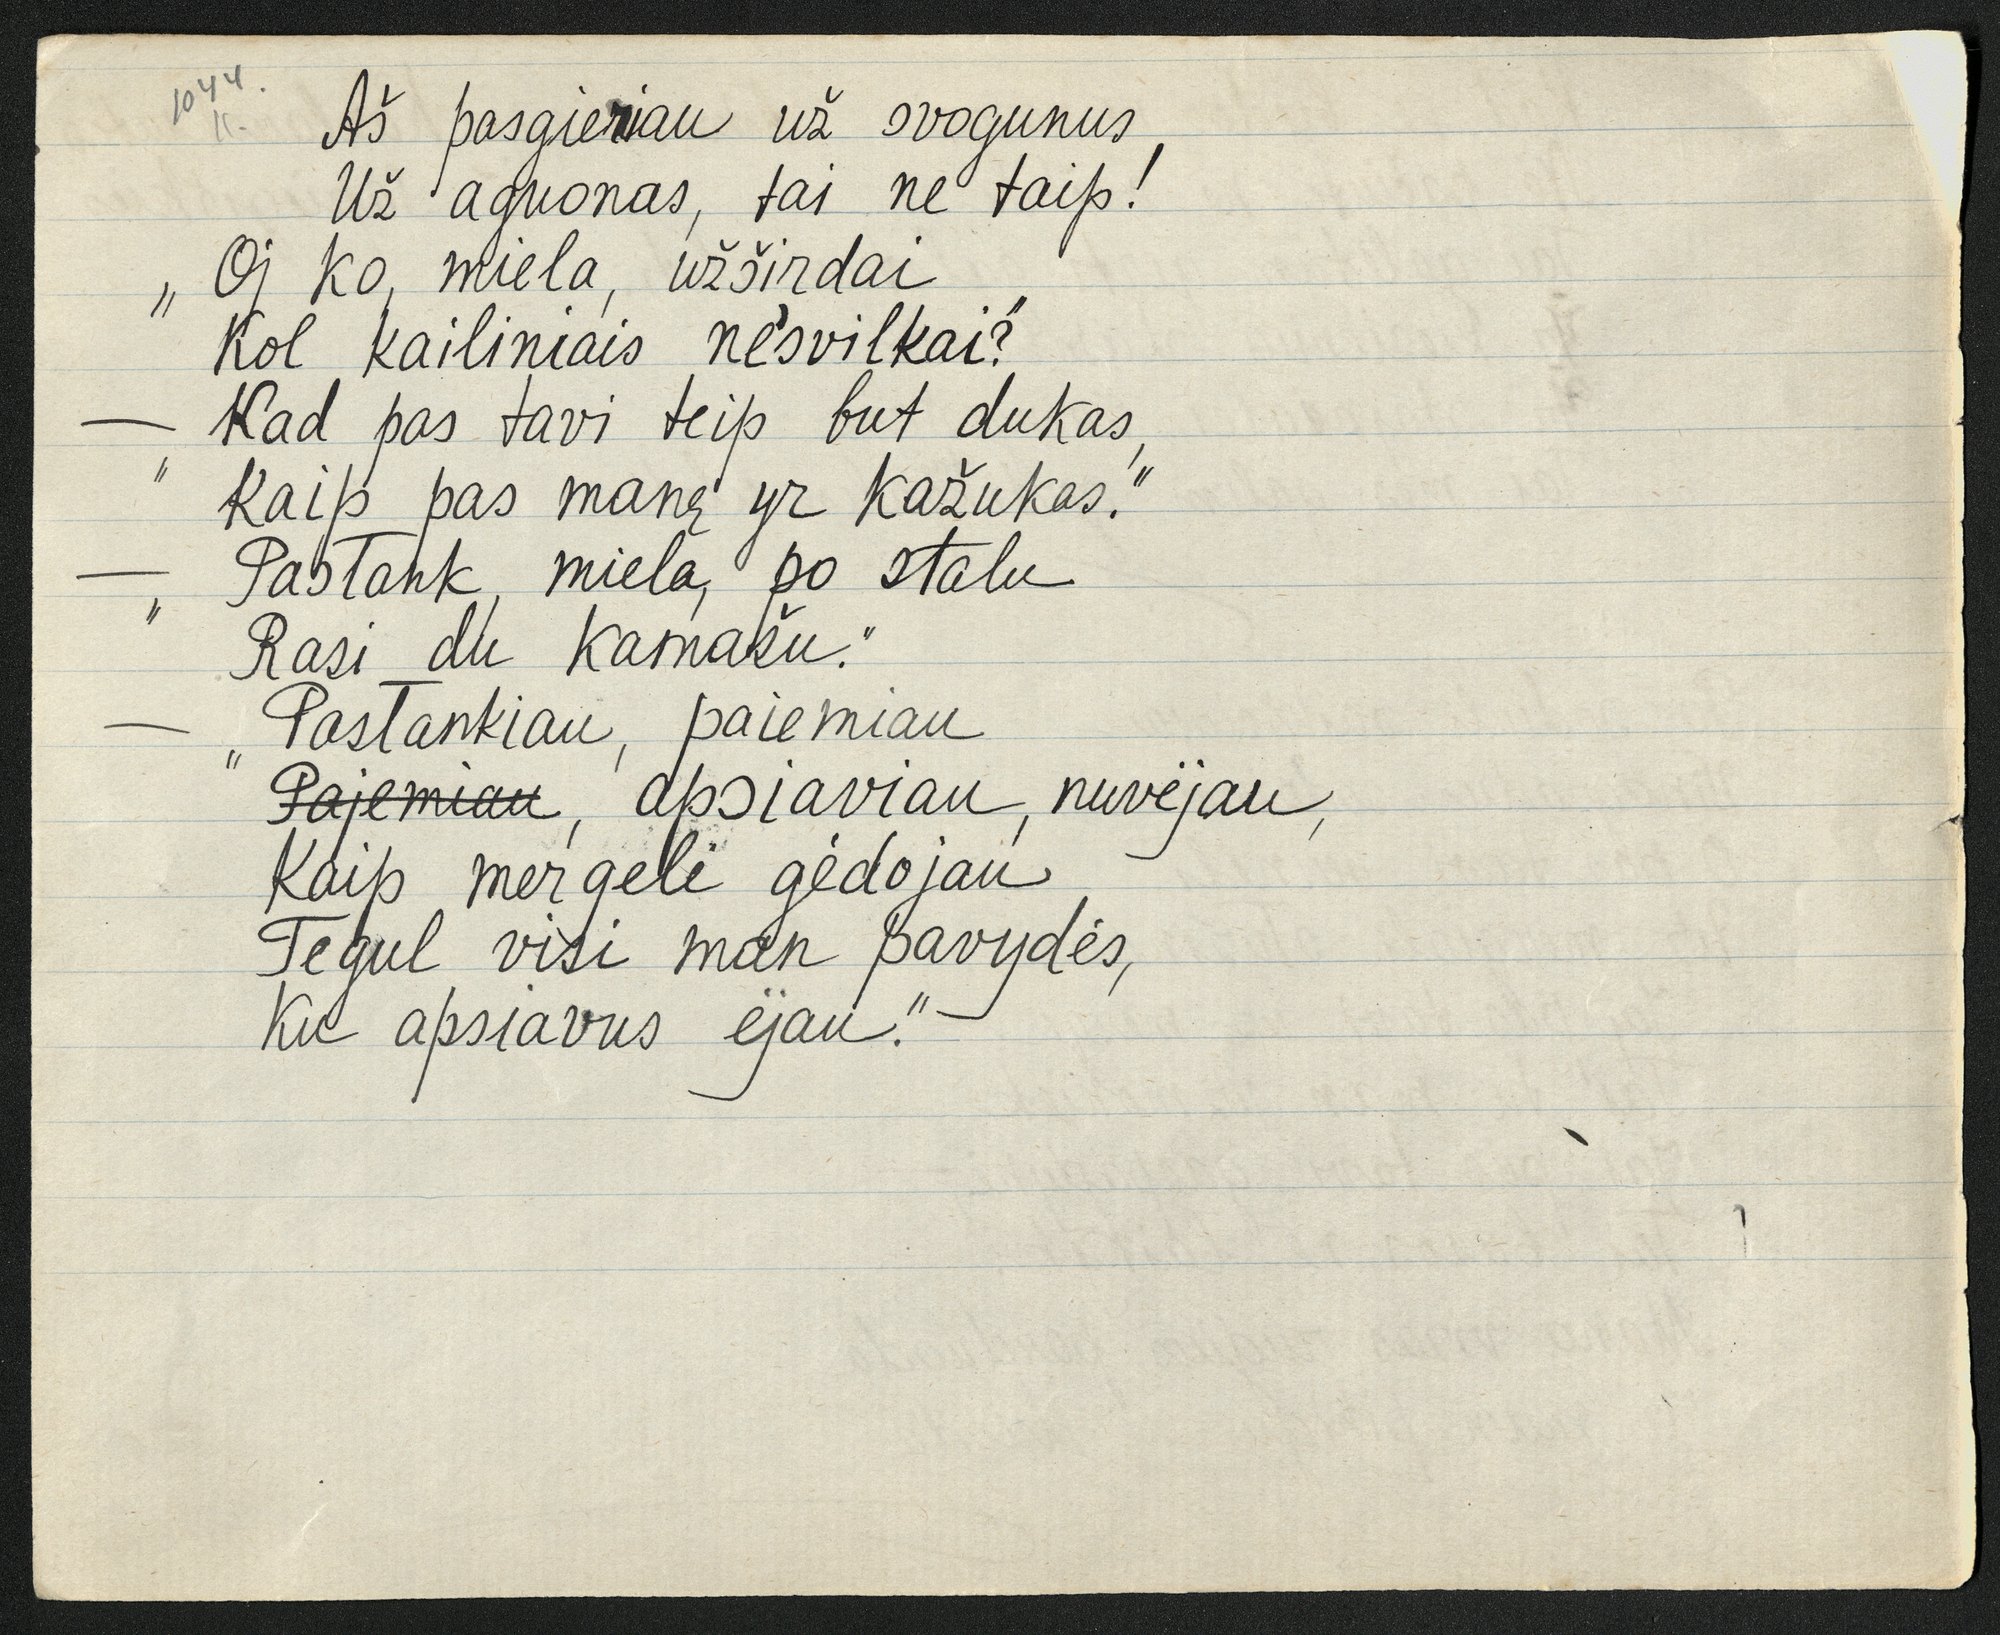 1044.
Aš pasgieriau už svogunus,
Už aguonas, tai ne taip!
„Oj ko, miela, užširdai
Kol kailiniais nesvilkai?"
— Kad pas tavi teip but dukas,
„Kaip pas manę yr kažukas."
— Pastank, miela, po stalu
„Rasi du kamašu."
— „Pastankiau, paiemiau
Pajemiau, apsiaviau, nuvėjau,
Kaip mergelė gėdojau
Tegul visi man pavydės,
Ku apsiavus ėjau."